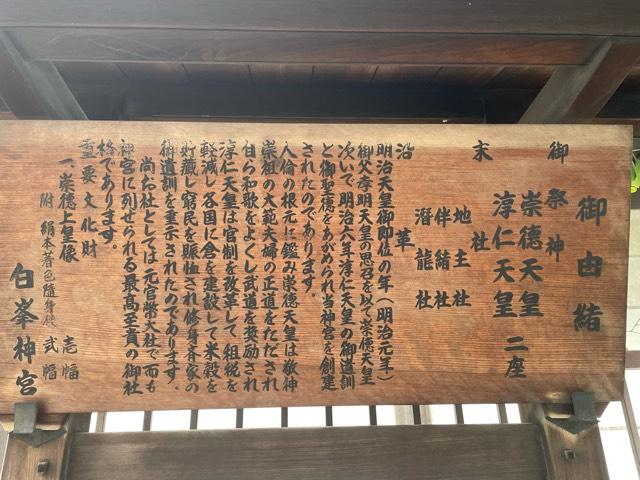 御由緒
御祭神
崇徳天皇
淳仁天皇 二座
末社
地主社
伴緒社
潛龍社
沿革
明治天皇御即位の年(明治元年)
御父孝明天皇の思召を以て崇徳天皇
次いで明治六年淳仁天皇の御遺訓
と御聖徳をあがめられ当神宮を創建
されたのであります。
人倫の根元に鑑み崇徳天皇は敬神
崇祖の大範夫婦の正道をただされ
自ら和歌をよくし武道を奨励され
淳仁天皇は官制を改革して、租税を
軽減し各国に倉を建設して米穀を
貯蔵し窮民を賑恤され修身斉家の
御遺訓を垂示されたのであります。
尚お社としては元官幣大社で而も
神宮に列せられる最高至貴の御社
格であります。
重要文化財
一、崇徳上皇像 壱幅
附 絹本著色隨身像 弐幅
白峯神宮